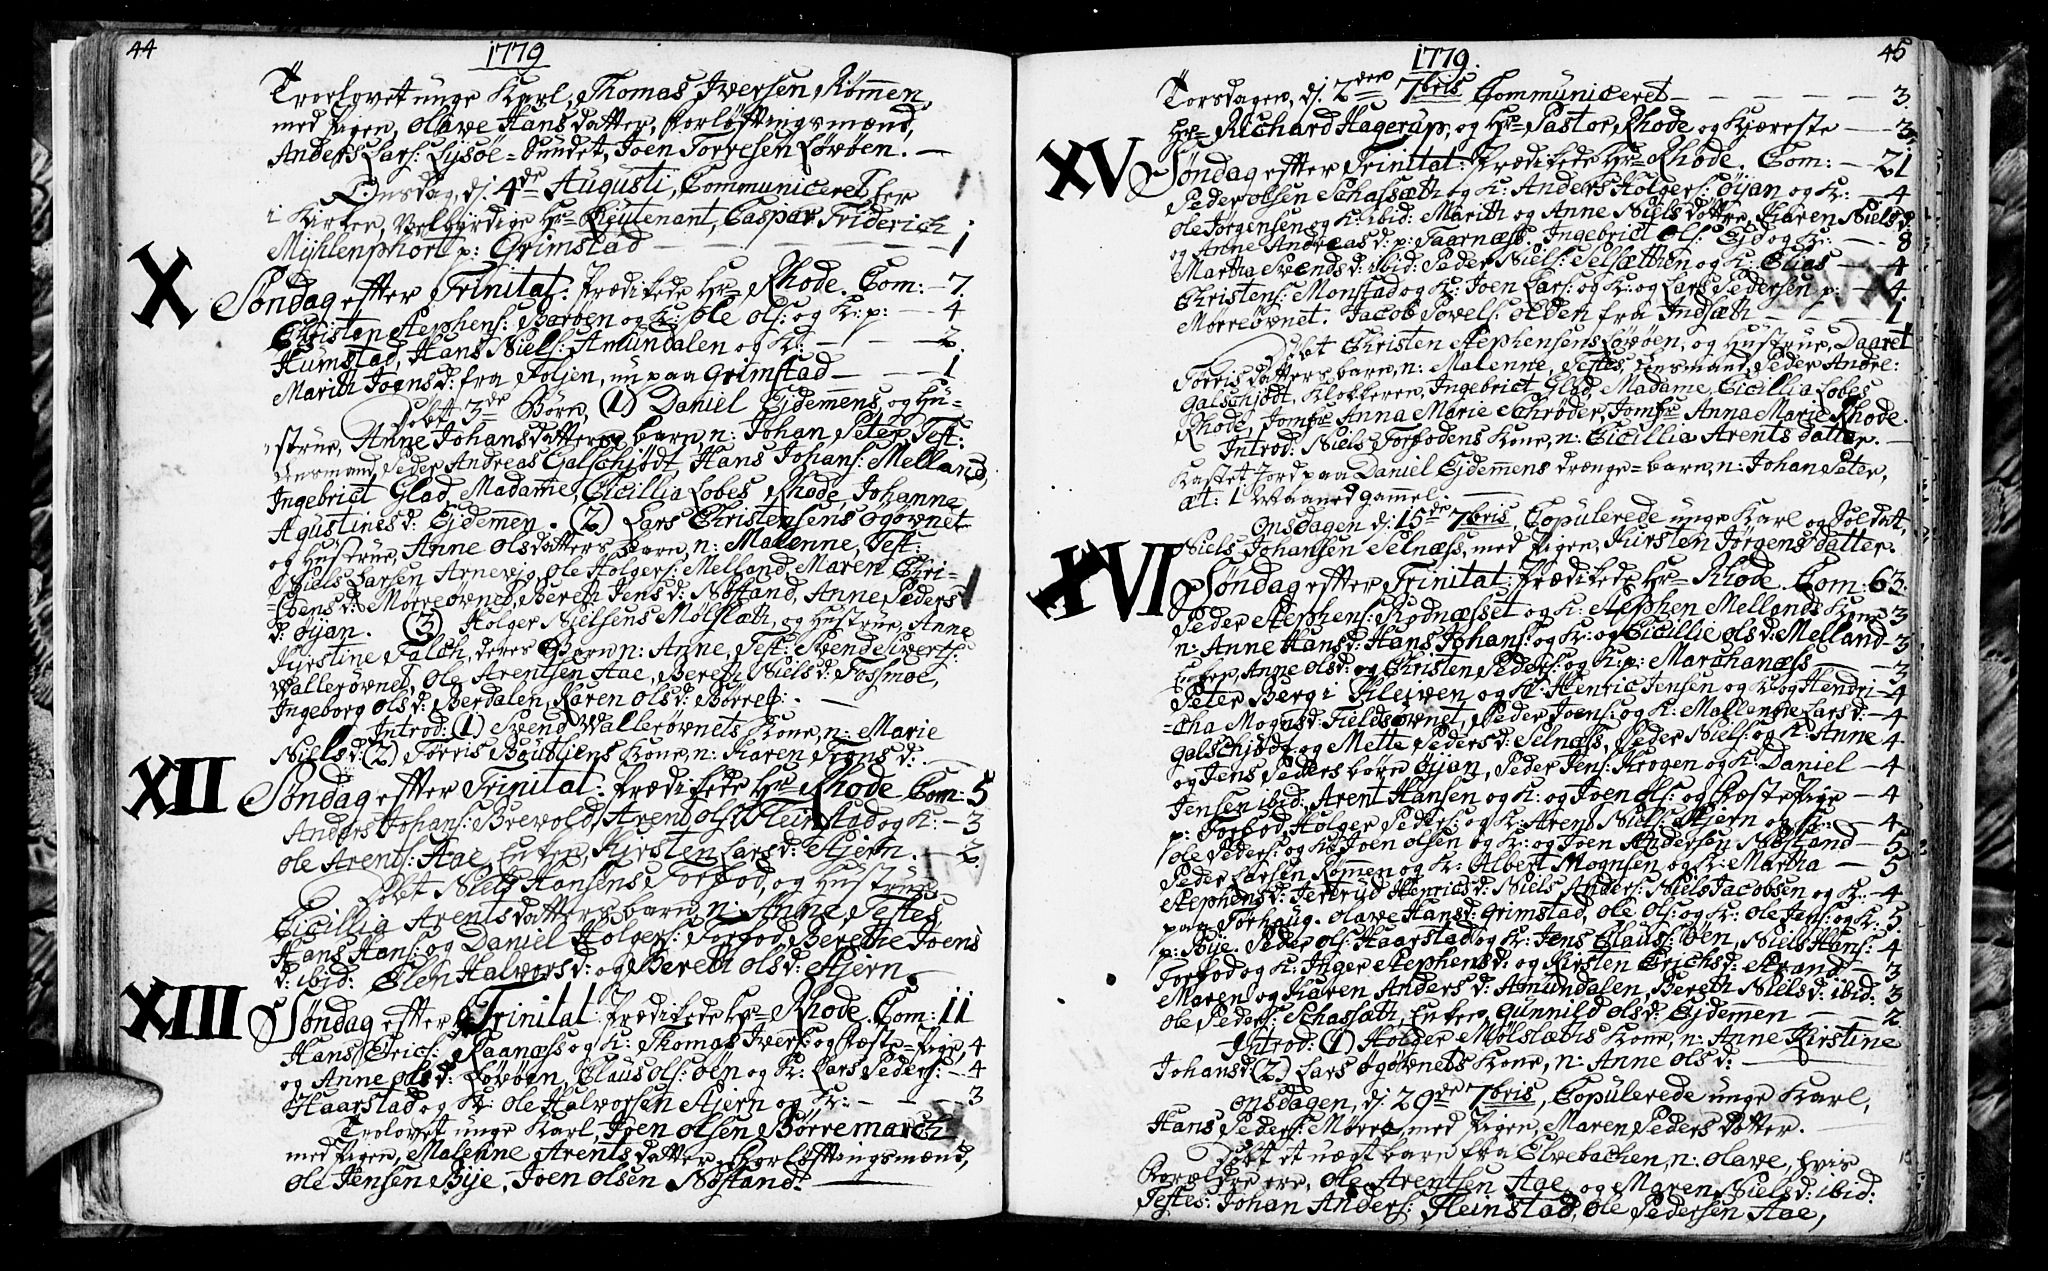 44
1779
Troelovet unge Karl, Thomas Iversen Rømmen,
med Pigen, Olave Hansdatter, Forløftningsmænd,
Anders Lars: Lysøe-Sundet, Joen Torresen Lövöen. —
Onsdag, d: 4de Augusti, Communiceret her
i Kirken, Velbyrdige Hr Lieutenant, Caspar Friderich
Mühlenphort p: Grimstad — 1
X
Søndag effter Trinitat: Prædikede Hr Rhode. Com: — 7.
Christen Stephens: Børøen og K: Ole Ols: og K: p: — 4
Humstad, Hans Niels: Amundalen og K: — 2
Marith Joensd: fra Foljen, nu paa Grimstad — 1
Døbt 3de Børn (1) Daniel Ejdemens, og Hu-
strue, Anne Johansdatters barn, n: Johan Peter, Test:
Lensmand, Peder Andreas Galschjödt, Hans Johans: Melland,
Ingebrict Glad, Madame, Cicillia Lobes Rhode, Johanne
Agustinesd: Ejdemen. (2) Lars Christensens Ögövnet
og Hustrue, Anne Olsdatters barn, n: Malenne, Test:
Niels Larsen Arnevig, Ole Holgers: Melland, Maren Chri-
stensd: Mørreövnet, Bereth Jensd: Nøstand, Anne Peders
d: Öyan. (3) Holger Nielsens Mølslæth, og Hustrue, Anne
Kjrstine Falch, deres Barn n: Anne, Test: Svend Siverts:
Walleröwnet, Ole Arentsen Aae, Bereth Nielsd: Fossmoe,
Ingeborg Olsd: Berdalen, Karen Olsd: Börret. —
Introd: (1) Svend Walleröwnets Kone, n: Marie
Nielsd: (2) Torris Kone, n: Karen Tronsd: —
XII
Søndag effter Trinitat: Prædikede Hr Rhode Com: 5
Anders Johans: Brevold, Arent Ols: Fleinstad og K: — 3
Ole Arents: Aae, Enken, Kirsten Larsd: Stjern. — 2.
Døbt Niels Hansens Torfod, og Hustrue
Cicillia Arentsdatters barn, n: Anne Testes
Hans Hans: og Daniel Holgers: Torfod, Berethe Joens
d: ibid: Elen Halvorsd: og Bereth Olsd: Stjern —
XIII
Søndag effter Trinitat: Prædikede Hr Rhode. Com: 11
Hans Erics: Raanæss og K: Thomas Ivers: og Fæste-Pige, 4
og Anne Olsd: Lövöen, Claus Ols: Öen og K: Lars Peders: — 4
Haarstad og K: Ole Halvorsen Stjern og K: — 3
Trolovet unge Karl, Joen Olsen Börremarch
med Pigen, Malenne Arentsdatter. Forløftningsmænd,
Ole Jensen Bije, Joen Olsen Nøstand. —
45
1779.
Torsdagen, d: 2den 7bris Communiceret — 3.
Hr Richard Hagerup, og Hr Pastor Rhode og Kjæreste — 3
XV
Søndag effter Trinitat: Prædikede Hr Rhode. Com: — 21
Peder Olsen Schassæth og K: Anders Holgers: Öyan og K: — 4
Ole Jørgensen og K: ibid: Marith og Anne Nielsdøttre, Karen Nielsd:
og Anne Andreasd: p: Taarnæss. Ingebrict Ols: Ejd og K: — 8
Martha Svendsd: ibid: Peder Niels: Selsætthen og K: Elias — 4
Christens: Monstad og K: Joen Lars: og K: og Lars Pedersen p: — 4
Mørreövnet. Jacob Povels: Olden fra Indsæth — 1
Døbt Christen Stephensens Lövöen, og Hustrue, Daaret
Torrisdatters barn, n: Malenne, Testes, Lensmand, Peder Andre:
Galschjödt, Klokkeren, Ingebrict Glad, Madame, Cicillia Lobes
Rhode, Jomfr Anna Marie Schrøder, Jomfr Anna Marie Rhode.
Introd: Niels Torfodens Kone, n: Cicillia Arentsdatter. —
Kastet Jord paa Daniel Ejdemens drænge-barn, n: Johan Peter,
æt: 1 Maaned gammel. —
Onsdagen d: 15de 7bris, Copulerede unge Karl og Soldatt,
Niels Johansen Selnæss, med Pigen, Kirsten Jørgensdatter.
XVI
Søndag effter Trinitat: Prædikede Hr Rhode. Com: 63.
Peder Stephens: Rødnæsset og K: Stephen Mellands Kone 3
n: Anne Hansd: Hans Johans: og K: og Cicillie Olsd: Melland — 3
Enken, Anne Olsd: og Christen Peders: og K: p: Marchanæss — 3
Peter Berg i Kleiven og K: Henric Jensen og K: og Hendri- — 4
-cha Mognsd: Fieldsövnet, Peder Joens: og K: Mallenne Larsd: — 4
Galschjödt og Mette Pedersd: Selnæss, Peder Niels: og K: Anne 4
og Jens Peders børn Öyan, Peder Jens: Krogen og K: Daniel — 4
Jensen ibid: Arent Hansen og K: og Joen Ols: og Fæste Pige — 4
p: Torfod, Holger Peders: og K: Arent Niels: Stjern og K: — 4
Ole Peders: og K: Joen Olsen og K: og Joen Andersen Nøstand — 5
Peder Larsen Rømmen og K: Albert Mognsen og K: Martha — 5
Stephensd: Jertrud Henricsd: Niels Anders: Niels Jacobsen og K: — 4
paa Torhaug. Olave Hansd: Grimstad, Ole Ols: og K: Ole Jens: og K: 5
p: Bije. Peder Ols: Haarstad og K: Jens Claus: Öen, Niels Hans: 4
Torfod og K: Inger Stephensd: og Kirsten Erichsd: Strand — 3
Maren og Karen Andersd: Amundalen, Bereth Nielsd: ibid: 3
Ole Peders: Schassæth, Enken, Gunnild Olsd: Ejdemen — 2
Introd: (1) Holder Mølslæths Kone, n: Anne Kirstine
Johansd: (2) Lars Ögövnets Kone, n: Anne Olsd: —
Onsdagen, d: 29de 7bris, Copulerede unge Karl,
Hans Peders: Mørre, med Pigen, Maren Pedersdatter. —
Døbt et uægt barn fra Elvebachen, n: Olave, hvis
Forældre ere, Ole Arentsen Aae, og Maren Nielsd: ibid:
Testes: Johan Anders: Fleinstad, Ole Pedersen Aae,